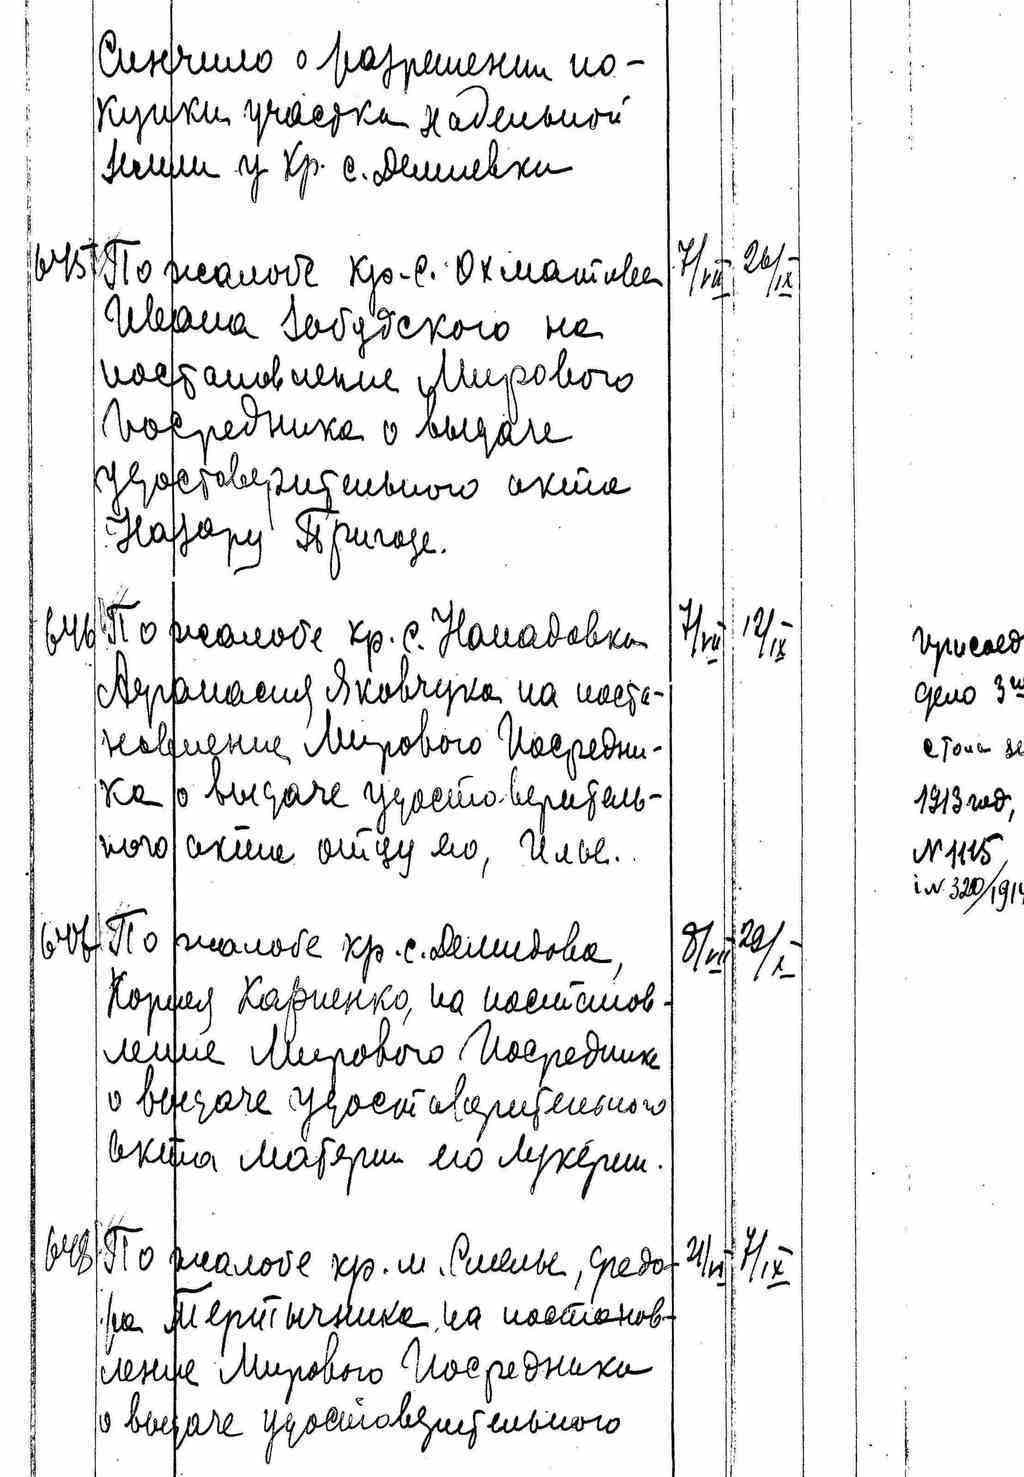 Синчило о разрешении по-
купки участка надельной
земли у кр. с. Демиевки
645 По жалобе кр. с. Охматова 7/VII 26/IX
Ивана Забудского на
постановление Мирового
Посредника о выдаче
удостоверительного акта
Назару Пригоде.
646 По жалобе кр. с. 7/VII 12/IX
Афанасия Яковчука на поста-
новление Мирового Посредни-
ка о выдаче удостоверитель-
ного акта отцу его, Илье.
Присоед
дело 3го
стола
1913 год,
N 1115
i N 320/1914
По жалобе кр. с. Демидова, 8/VII 29/X
Корнея Карпенко, на постанов-
ление Мирового Посредника
о выдаче удостоверительного
акта матери его Лукерии.
648 По жалобе кр. м. Смелы, Федо- 21/VI 7/IX
ра Тертычника на постанов-
ление Мирового Посредника
о выдаче удостоверительного